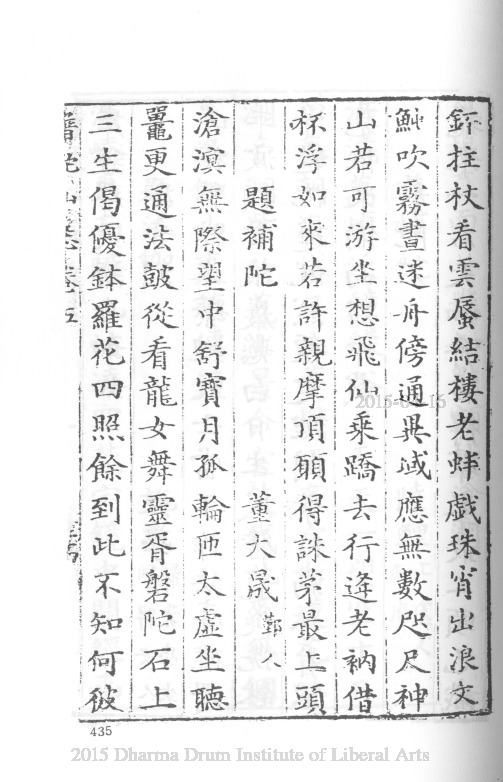 鉼拄杖看雲蜃結樓老蚌戲珠宵出浪文
鰩吹霧晝迷舟傍通異域應無數咫尺神
山若可游坐想飛仙乘蹻去行逢老衲借
杯浮如來若許親摩頂願得誅茅最上頭
題補陀 董大晟 鄞人
滄溟無際望中舒寶月孤輪匝太虛坐聽
鼉更通法鼓從看龍女舞靈胥磐陀石上
三生偈優鉢羅花四照餘到此不知何彼
普陀山志卷五
2015
435
2015 Dharma Drum Institute of Liberal Arts